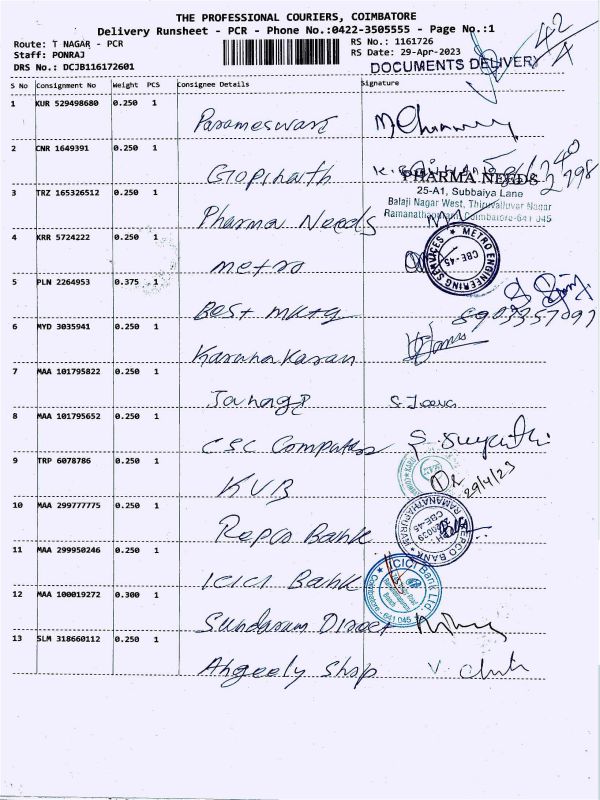 THE PROFESSIONAL COURIERS, COIMBATORE
Delivery Runsheet - PCR - Phone No.:0422-3505555 - Page No.:1
Route: T NAGAR - PCR
RS No.: 1161726
Staff: PONRAJ
RS Date: 29-Apr-2023
DRS No.: DCJB116172601
DOCUMENTS DELIVERY
42/A
S No Consignment No Weight PCS Consignee Details Signature
1 KUR 529498680 0.250 1
Parameswari
2 CNR 1649391 0.250 1
Gopinath
3 TRZ 165326512 0.250 1
PHARMA NEEDS
25-A1, Subbaiya Lane
Balaji Nagar West, Thiruvalluvar Nagar
Ramanathapuram, Coimbatore-641 045
Pharma Needs
4 KRR 5724222 0.250 1
metro
METRO ENGINEERING SERVICES
CBE-45
5 PLN 2264953 0.375 1
Best mktg
8903357097
6 MYD 3035941 0.250 1
Karunakaran
7 MAA 101795822 0.250 1
Janagi
8 MAA 101795652 0.250 1
CSC Computer
9 TRP 6078786 0.250 1
KVB
29/4/23
10 MAA 299777775 0.250 1
Repco Bank
REPCO BANK
RAMANATHAPURAM
CBE-45
11 MAA 299950246 0.250 1
ICICI Bank
ICICI Bank Ltd
Coimbatore - 641 045
12 MAA 100019272 0.300 1
Sundaram Direct
13 SLM 318660112 0.250 1
Ahgeely Shop